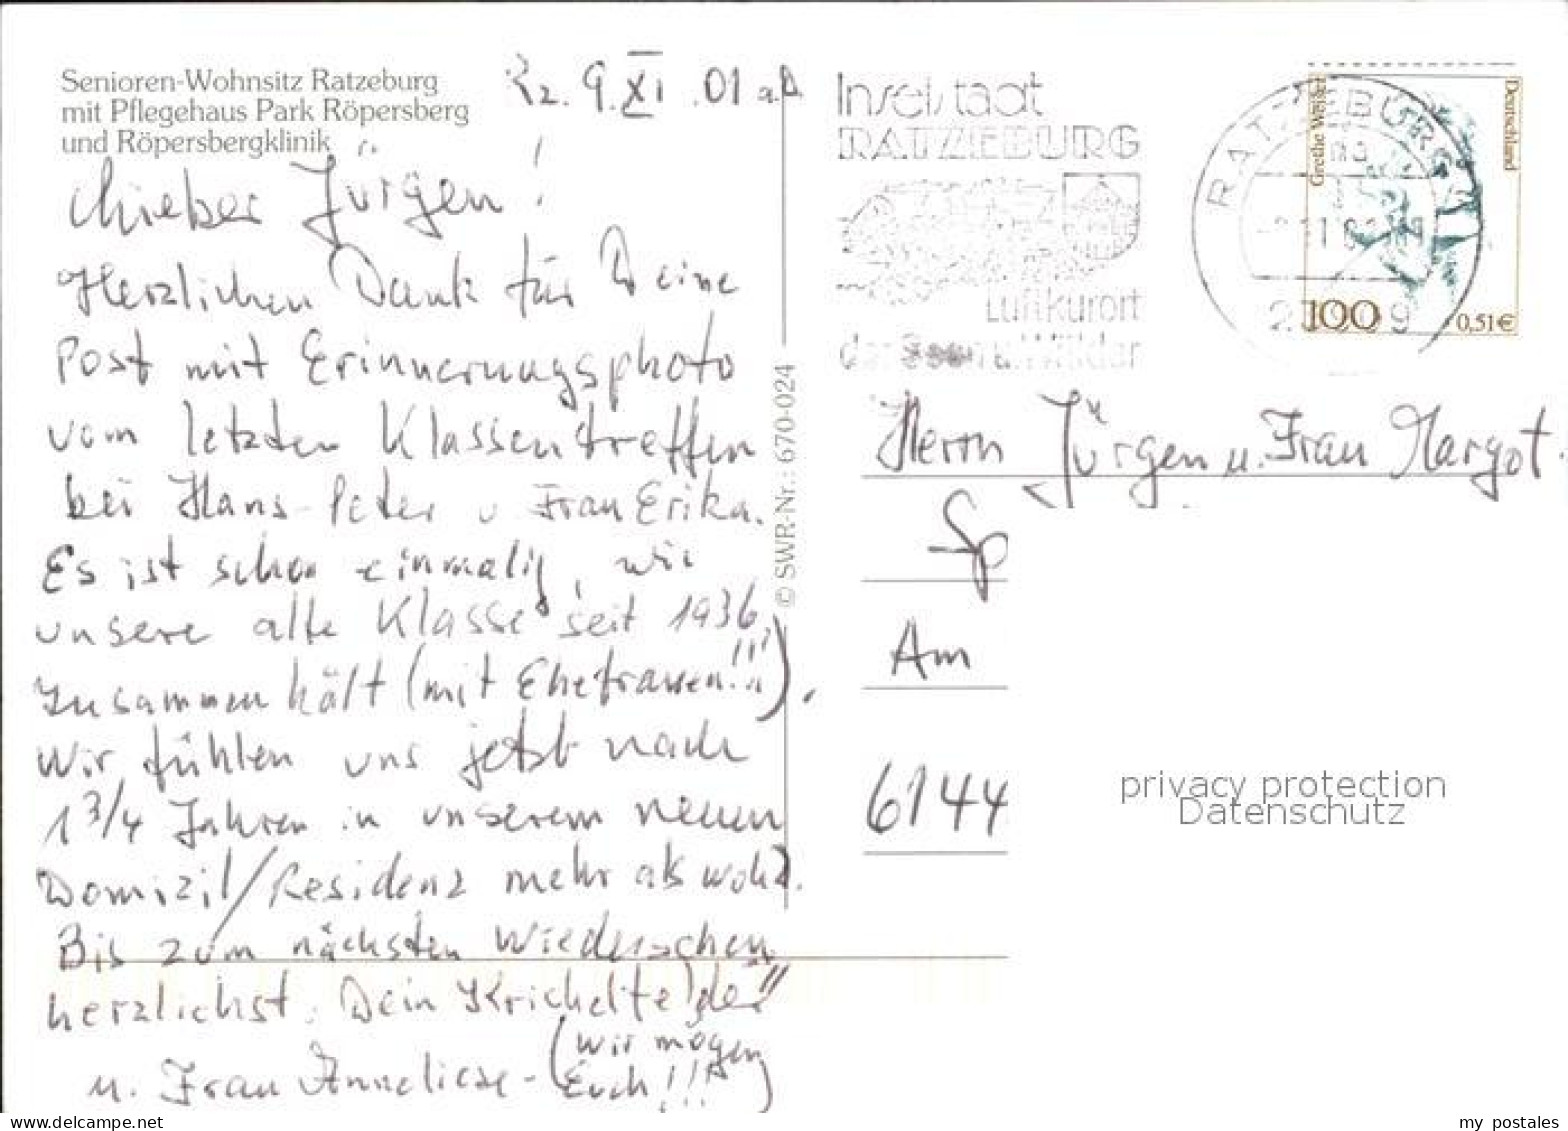 Senioren-Wohnsitz Ratzeburg
mit Pflegehaus Park Röpersberg
und Röpersbergklinik
Rz. 9. XI .01
Lieber Jürgen!
Herzlichen Dank für Deine
Post mit Erinnerungsphoto
vom letzten Klassentreffen
bei Hans-Peter u Frau Erika.
Es ist schon einmalig, wie
unsere alte Klasse seit 1936
zusammen hält (mit Ehefrauen!!!).
Wir fühlen uns jetzt nach
1 3/4 Jahren in unserem neuen
Domizil/Residenz mehr als wohl.
Bis zum nächsten Wiedersehen
herzlichst. Dein
u. Frau Anneliese - (wir mögen
Euch!!!)
© SWR-Nr.: 670-024
Inselstadt
RATZEBURG
Luftkurort
der Seen u. Wälder
RATZEBURG
Grethe Weiser
Deutschland
100
0,51€
Herrn Jürgen u. Frau Margot
Sp
Am
6144
privacy protection
Datenschutz
www.delcampe.net
my_postales